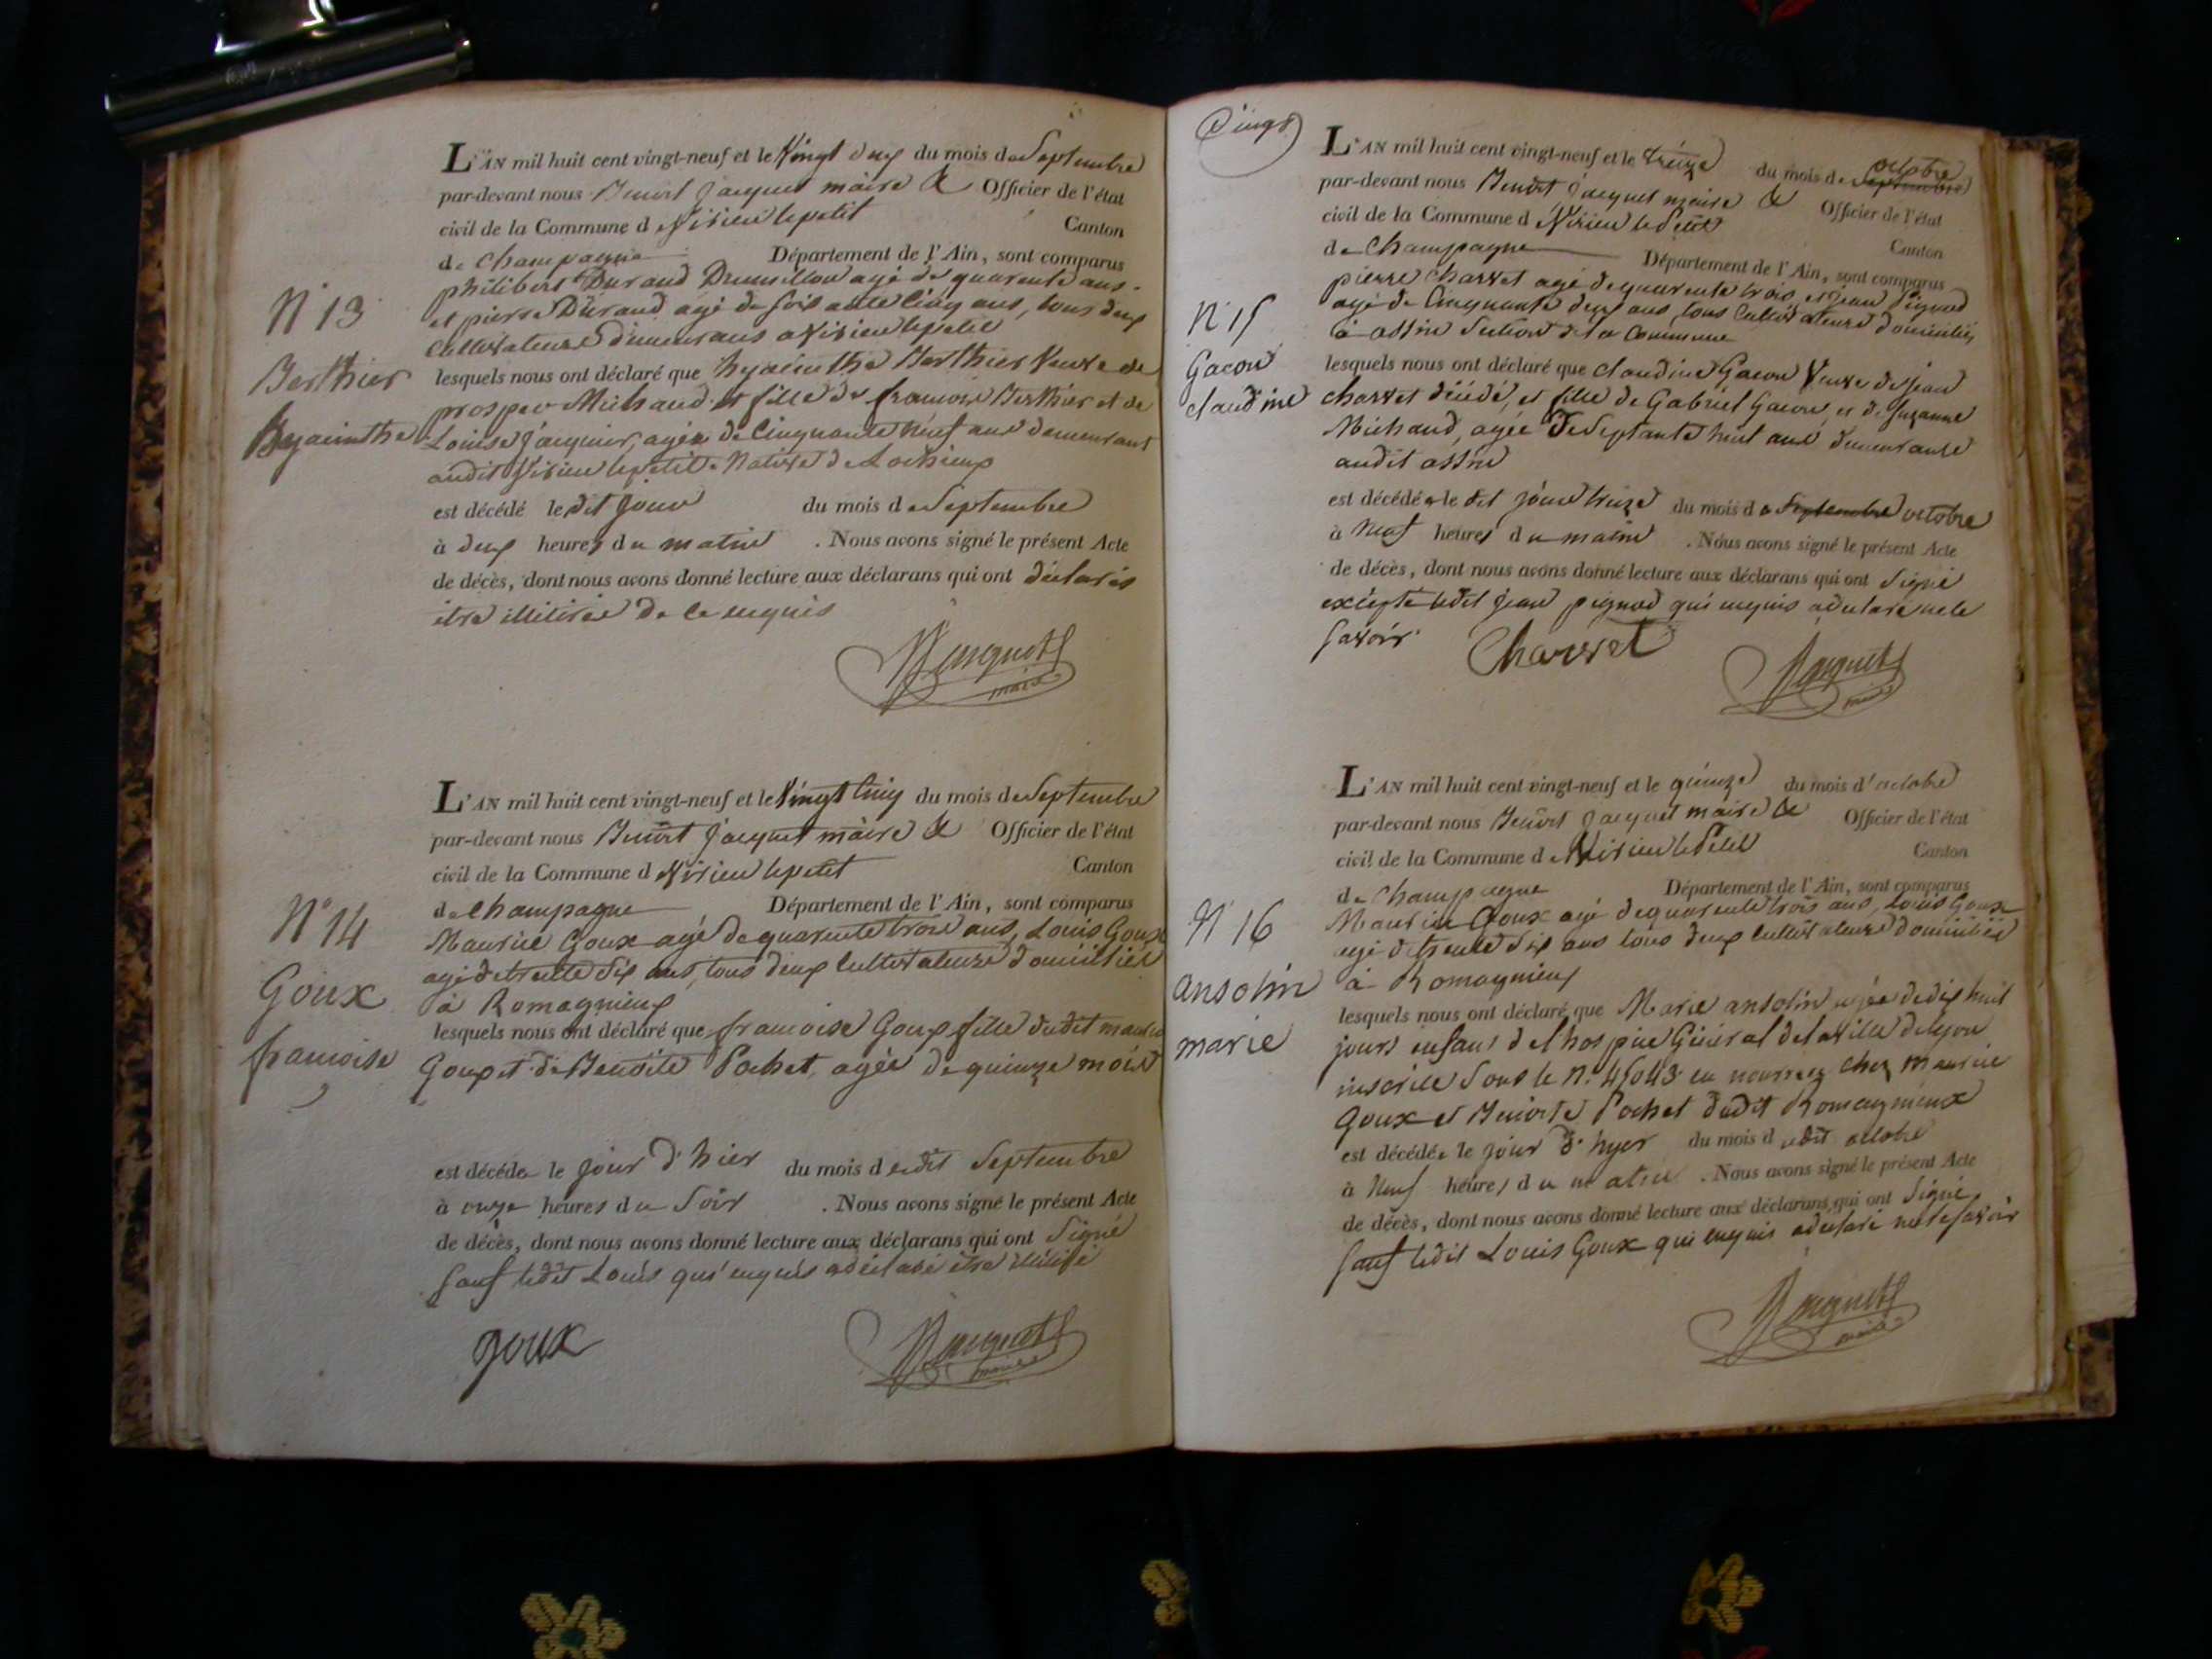 L'AN mil huit cent vingt-neuf et le Vingt deux du mois de Septembre
par-devant nous Benoit Jacquet maire & Officier de l'état
civil de la Commune de Virieu lepetit Canton
de Champagne Département de l'Ain, sont comparus
philibert Durand Drumillon agé de quarente ans
et pierre Durand agé de soixante Cinq ans, tous deux
Cultivateurs demeurans a Virieu lepetit
N° 13
Berthier
hyacinthe
lesquels nous ont déclaré que hyacinthe Berthier Veuve de
prosper Michaud et fille de francois Berthier et de
Louise Jacquier, agée de Cinquante Neuf ans demeurant
audit Virieu lepetit Native de Lochieux
est décédé le dit jour du mois de Septembre
à deux heures du matin . Nous avons signé le présent Acte
de décès, dont nous avons donné lecture aux déclarans qui ont déclarés
être illitirés de ce enquis
Jacquet
maire
L'AN mil huit cent vingt-neuf et le Vingt Cinq du mois de Septembre
par-devant nous Benoit Jacquet maire & Officier de l'état
civil de la Commune de Virieu lepetit Canton
de Champagne Département de l'Ain, sont comparus
N° 14
Goux
francoise
Maurice Goux agé de quarente trois ans, Louis Goux
agé de trente Six ans, tous deux Cultivateurs domiciliés
à Romagnieux
lesquels nous ont déclaré que francoise Goux fille dudit maurice
Goux et de Benoite Pochet, agée de quinze mois
est décédée le jour d'hier du mois de dit Septembre
à onze heures du Soir . Nous avons signé le présent Acte
de décès, dont nous avons donné lecture aux déclarans qui ont Signé
Sauf ledit Louis qui enquis a déclaré être illitiré
goux
Jacquet
maire
L'AN mil huit cent vingt-neuf et le treize du mois de Septembre octobre
par-devant nous Benoit Jacquet maire & Officier de l'état
civil de la Commune de Virieu le Petit Canton
de Champagne Département de l'Ain, sont comparus
pierre Charvet agé de quarente trois, et Jean Pignod
agé de Cinquante deux ans, tous Cultivateurs domiciliés
à assin Section de la Commune
N° 15
Gacon
claudine
lesquels nous ont déclaré que Claudine Gacon Veuve de Jean
Charvet décédé, et fille de Gabriel Gacon, et de Suzanne
Michaud, agée de Septante huit ans demeurante
audit assin
est décédée le dit jour treize du mois de Septembre octobre
à Neuf heures du matin . Nous avons signé le présent Acte
de décès, dont nous avons donné lecture aux déclarans qui ont Signé
excepté ledit Jean pignod qui enquis a declaré ne le
Savoir
Charvet
Jacquet
maire
L'AN mil huit cent vingt-neuf et le quinze du mois d'octobre
par-devant nous Benoit Jacquet maire & Officier de l'état
civil de la Commune de Virieu le Petit Canton
de Champagne Département de l'Ain, sont comparus
N° 16
ansolin
marie
Maurice Goux agé de quarente trois ans, Louis Goux
agé de trente Six ans tous deux Cultivateurs domiciliés
à Romagnieux
lesquels nous ont déclaré que Marie ansolin agée de dix huit
jours enfant de l'hospice Général de la ville de lyon
inscrite Sous le N° 45043 en nourrice chez Maurice
Goux et Benoite Pochet dudit Romagnieux
est décédée le jour d'hyer du mois dudit octobre
à Neuf heures du matin . Nous avons signé le présent Acte
de décès, dont nous avons donné lecture aux déclarans qui ont Signé
Sauf ledit Louis Goux qui enquis a declaré ne le Savoir
Jacquet
maire